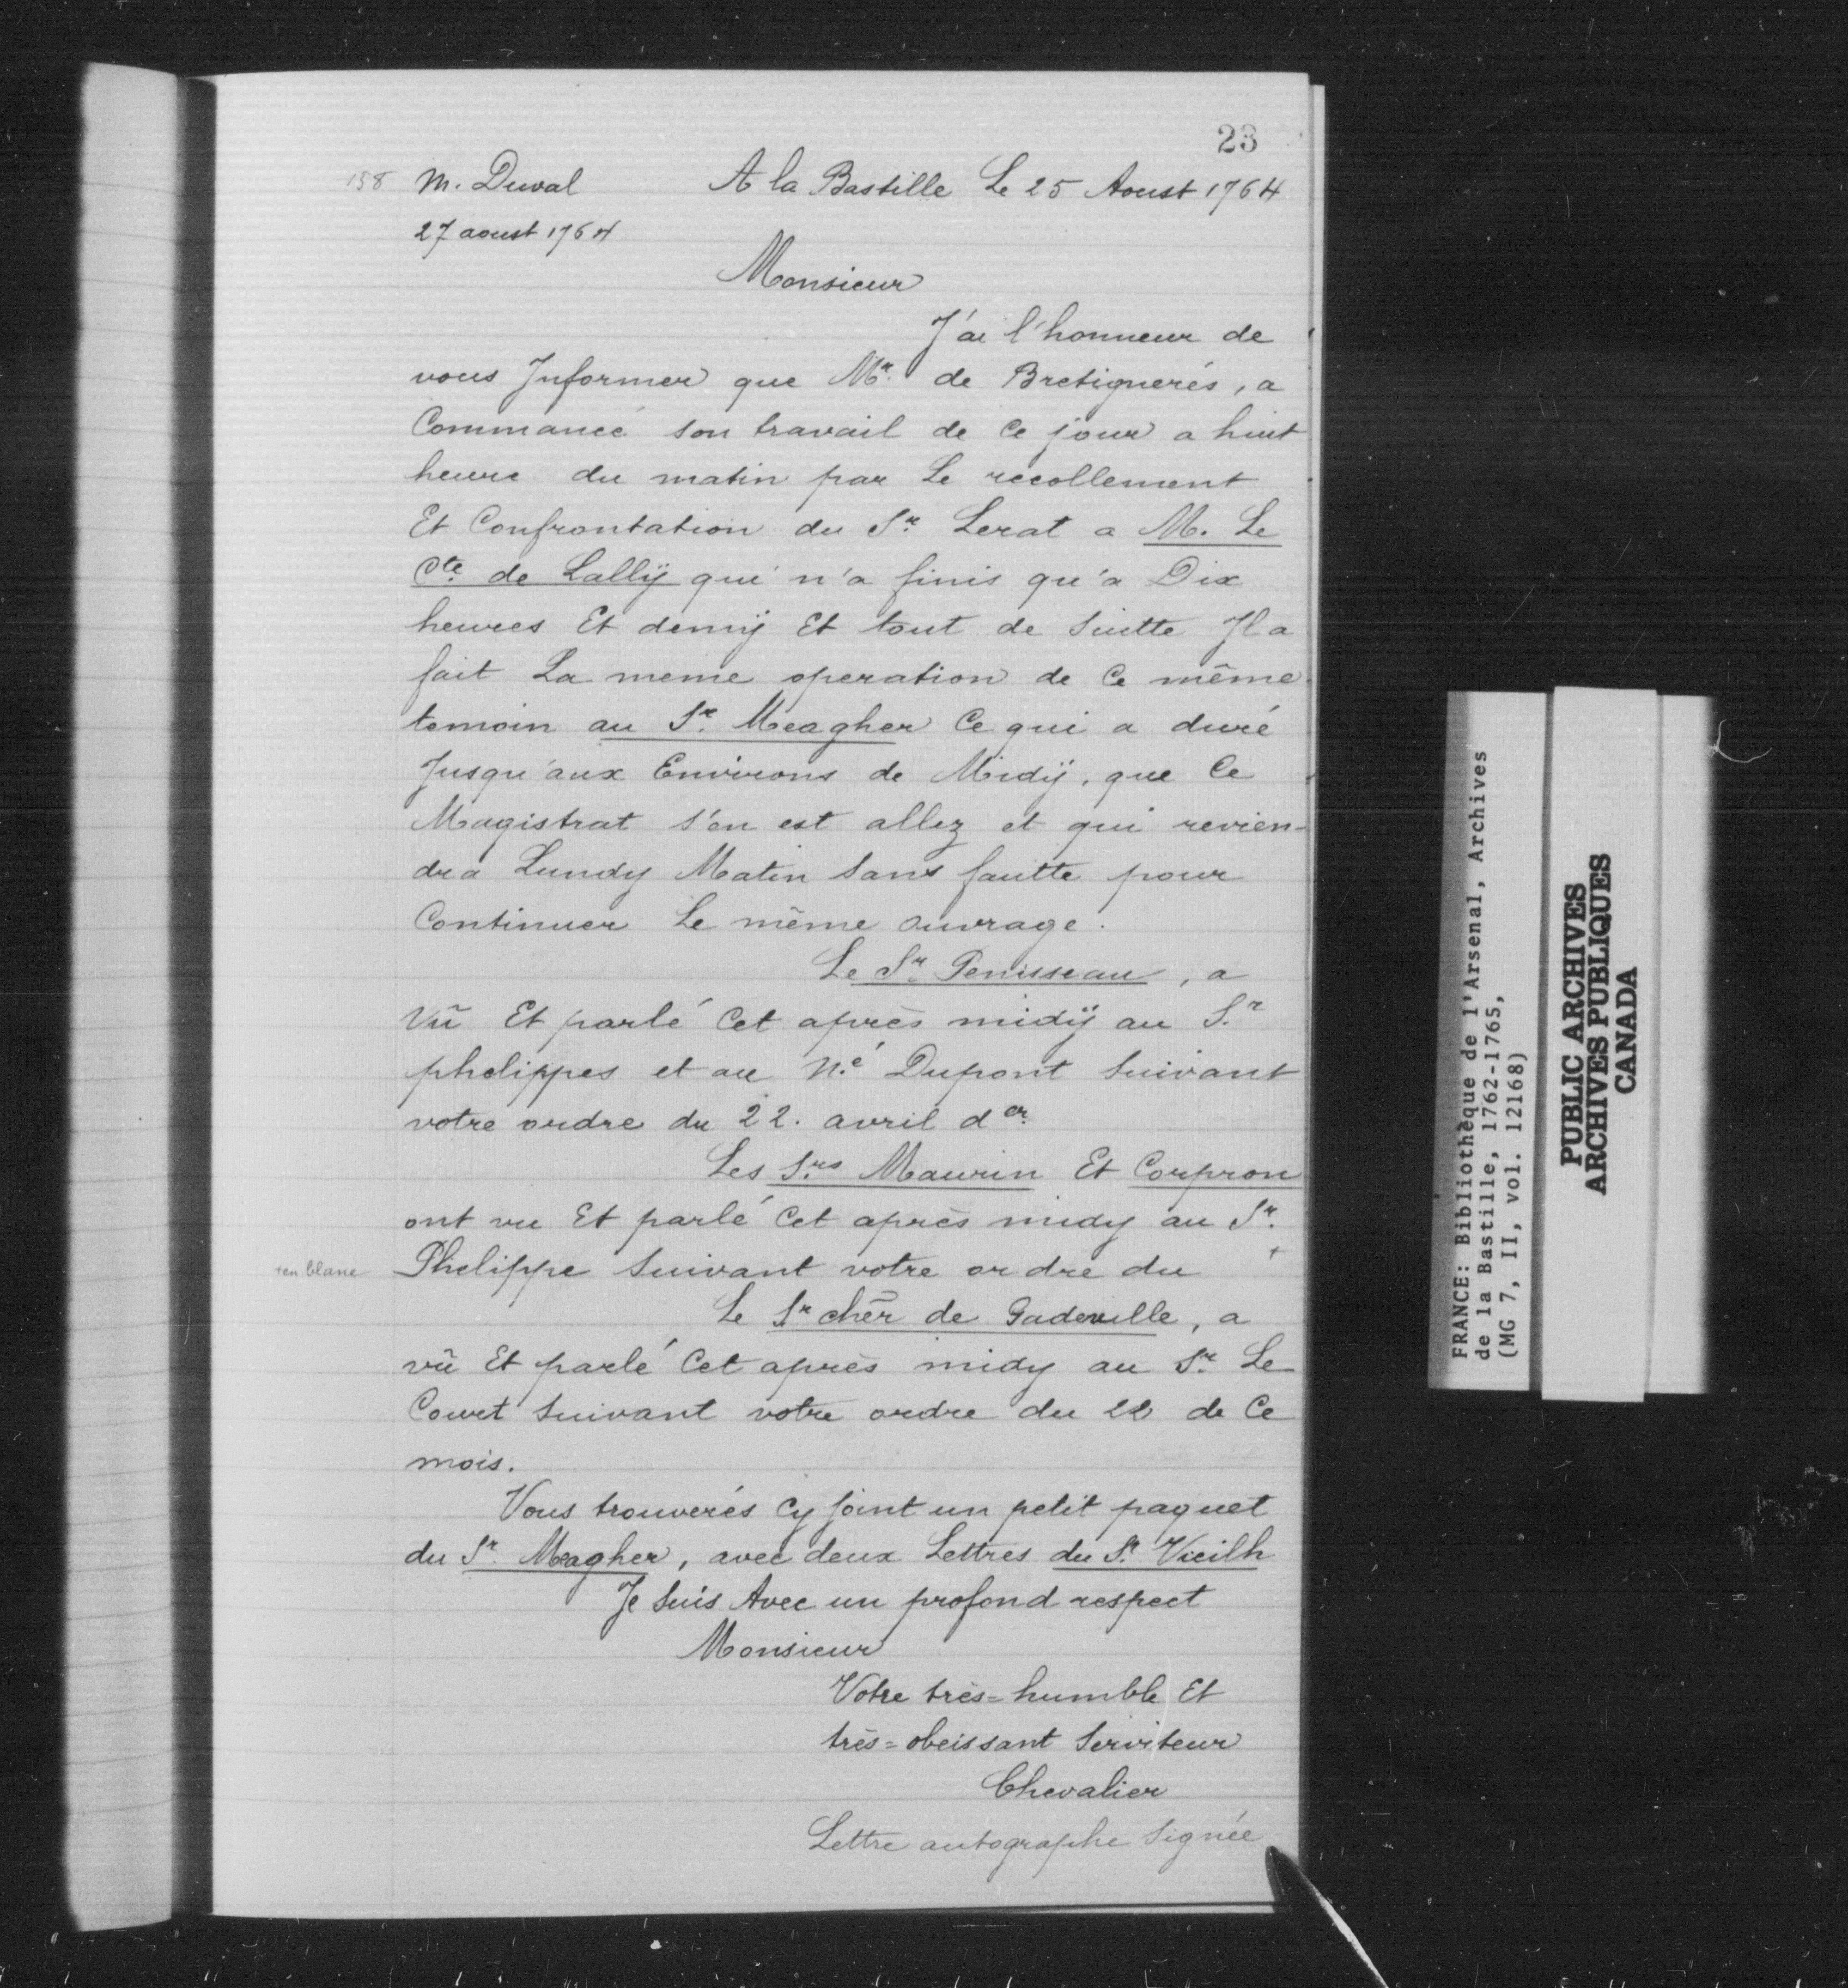 23
158 M. Duval A la Bastille Le 25 Aoust 1764
27 aoust 1764
Monsieur
J'ai l'honneur de
vous Informer que Mr. de Bretignerés, a
Commancé son travail de Ce jour a huit
heure du matin par Le recollement
Et Confrontation du Sr. Lerat a M. Le
Cte. de Lallÿ qui n'a finis qu'a Dix
heures Et demÿ Et tout de Suitte Jl a
fait La meme operation de Ce même
temoin au Sr. Meagher Ce qui a duré
Jusqu'aux Environs de Midÿ, que Ce
Magistrat s'en est allez et qui revien-
dra Lundy Matin Sans fautte pour
Continuer Le même ouvrage.
Le Sr. Penisseau, a
Vû Et parlé Cet après midÿ au S.r
phelippes et au N.é Dupont Suivant
votre ordre du 22. avril d.er
Les S.rs Maurin Et Corpron
ont vu Et parlé Cet après midy au Sr.
+en blanc Phelippe Suivant votre ordre du +
Le Sr chêr de Gadeville, a
vû Et parlé Cet après midy au Sr. Le
Couet Suivant votre ordre du 22 de Ce
mois.
Vous trouverés Cy Joint un petit paquet
du Sr. Meagher, avec deux Lettres du Sr. Vieilh
Je Suis Avec un profond respect
Monsieur
Votre très=humble Et
très=obeissant Serviteur
Chevalier
Lettre autographe Signée
FRANCE: Bibliothèque de l'Arsenal, Archives
de la Bastille, 1762-1765,
(MG 7, II, vol. 12168)
PUBLIC ARCHIVES
ARCHIVES PUBLIQUES
CANADA